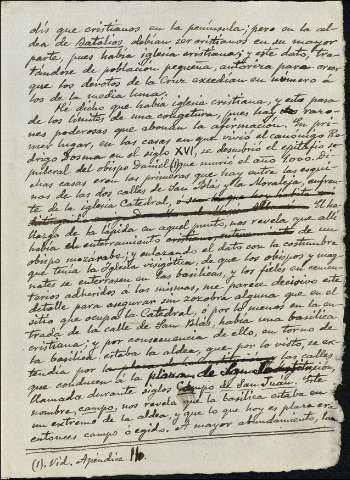 dís que cristianos en la península; pero en la al-
dea de Batalios debían ser cristianos en su mayor
parte, pues había iglesia cristiana; y este dato, tra-
tándose de población pequeña, autoriza para creer
que los devotos de la Cruz excedían en número á
los de la media luna.
He dicho que había iglesia cristiana, y esto pasa
de los límites de una conjetura, pues hay razo-
nes poderosas que abonan la afirmación. En pri-
mer lugar, en las casas en que vivió el canónigo Ro-
drigo Dosma en el siglo XVI, se descubrió el epitafio se-
pulcral del obispo Daniel (1) que murió el año 1000. Di-
chas casas eran las primeras que hay entre las esqui-
nas de las dos calles de San Blas y la Moraleja, enfren-
te de la iglesia Catedral,
El ha-
llazgo de la lápida en aquel punto, nos revela que allí
había un enterramiento de un
obispo mozárabe; y enlazando el dato con la costumbre
que tenía la Iglesia visigótica, de que los obispos y mag-
nates se enterrasen en las basílicas, y los fieles en cemen-
terios adheridos á las mismas, me parece decisivo este
detalle para asegurar sin zozobra alguna que en el
sitio q. ocupa la Catedral, ó por lo menos en la en-
trada de la calle de San Blas, había una basílica
cristiana; y por consecuencia de ello, en torno de
la basílica estaba la aldea, que por lo visto, se ex-
tendía por las calles
que conducen á la
llamada durante siglos Campo de San Juan. Este
nombre, campo, nos revela que la basílica estaba en
un extremo de la aldea, y que lo que hoy es plaza era
entonces campo ó egido. A mayor abundamiento, la
(1). Vid. Apéndice